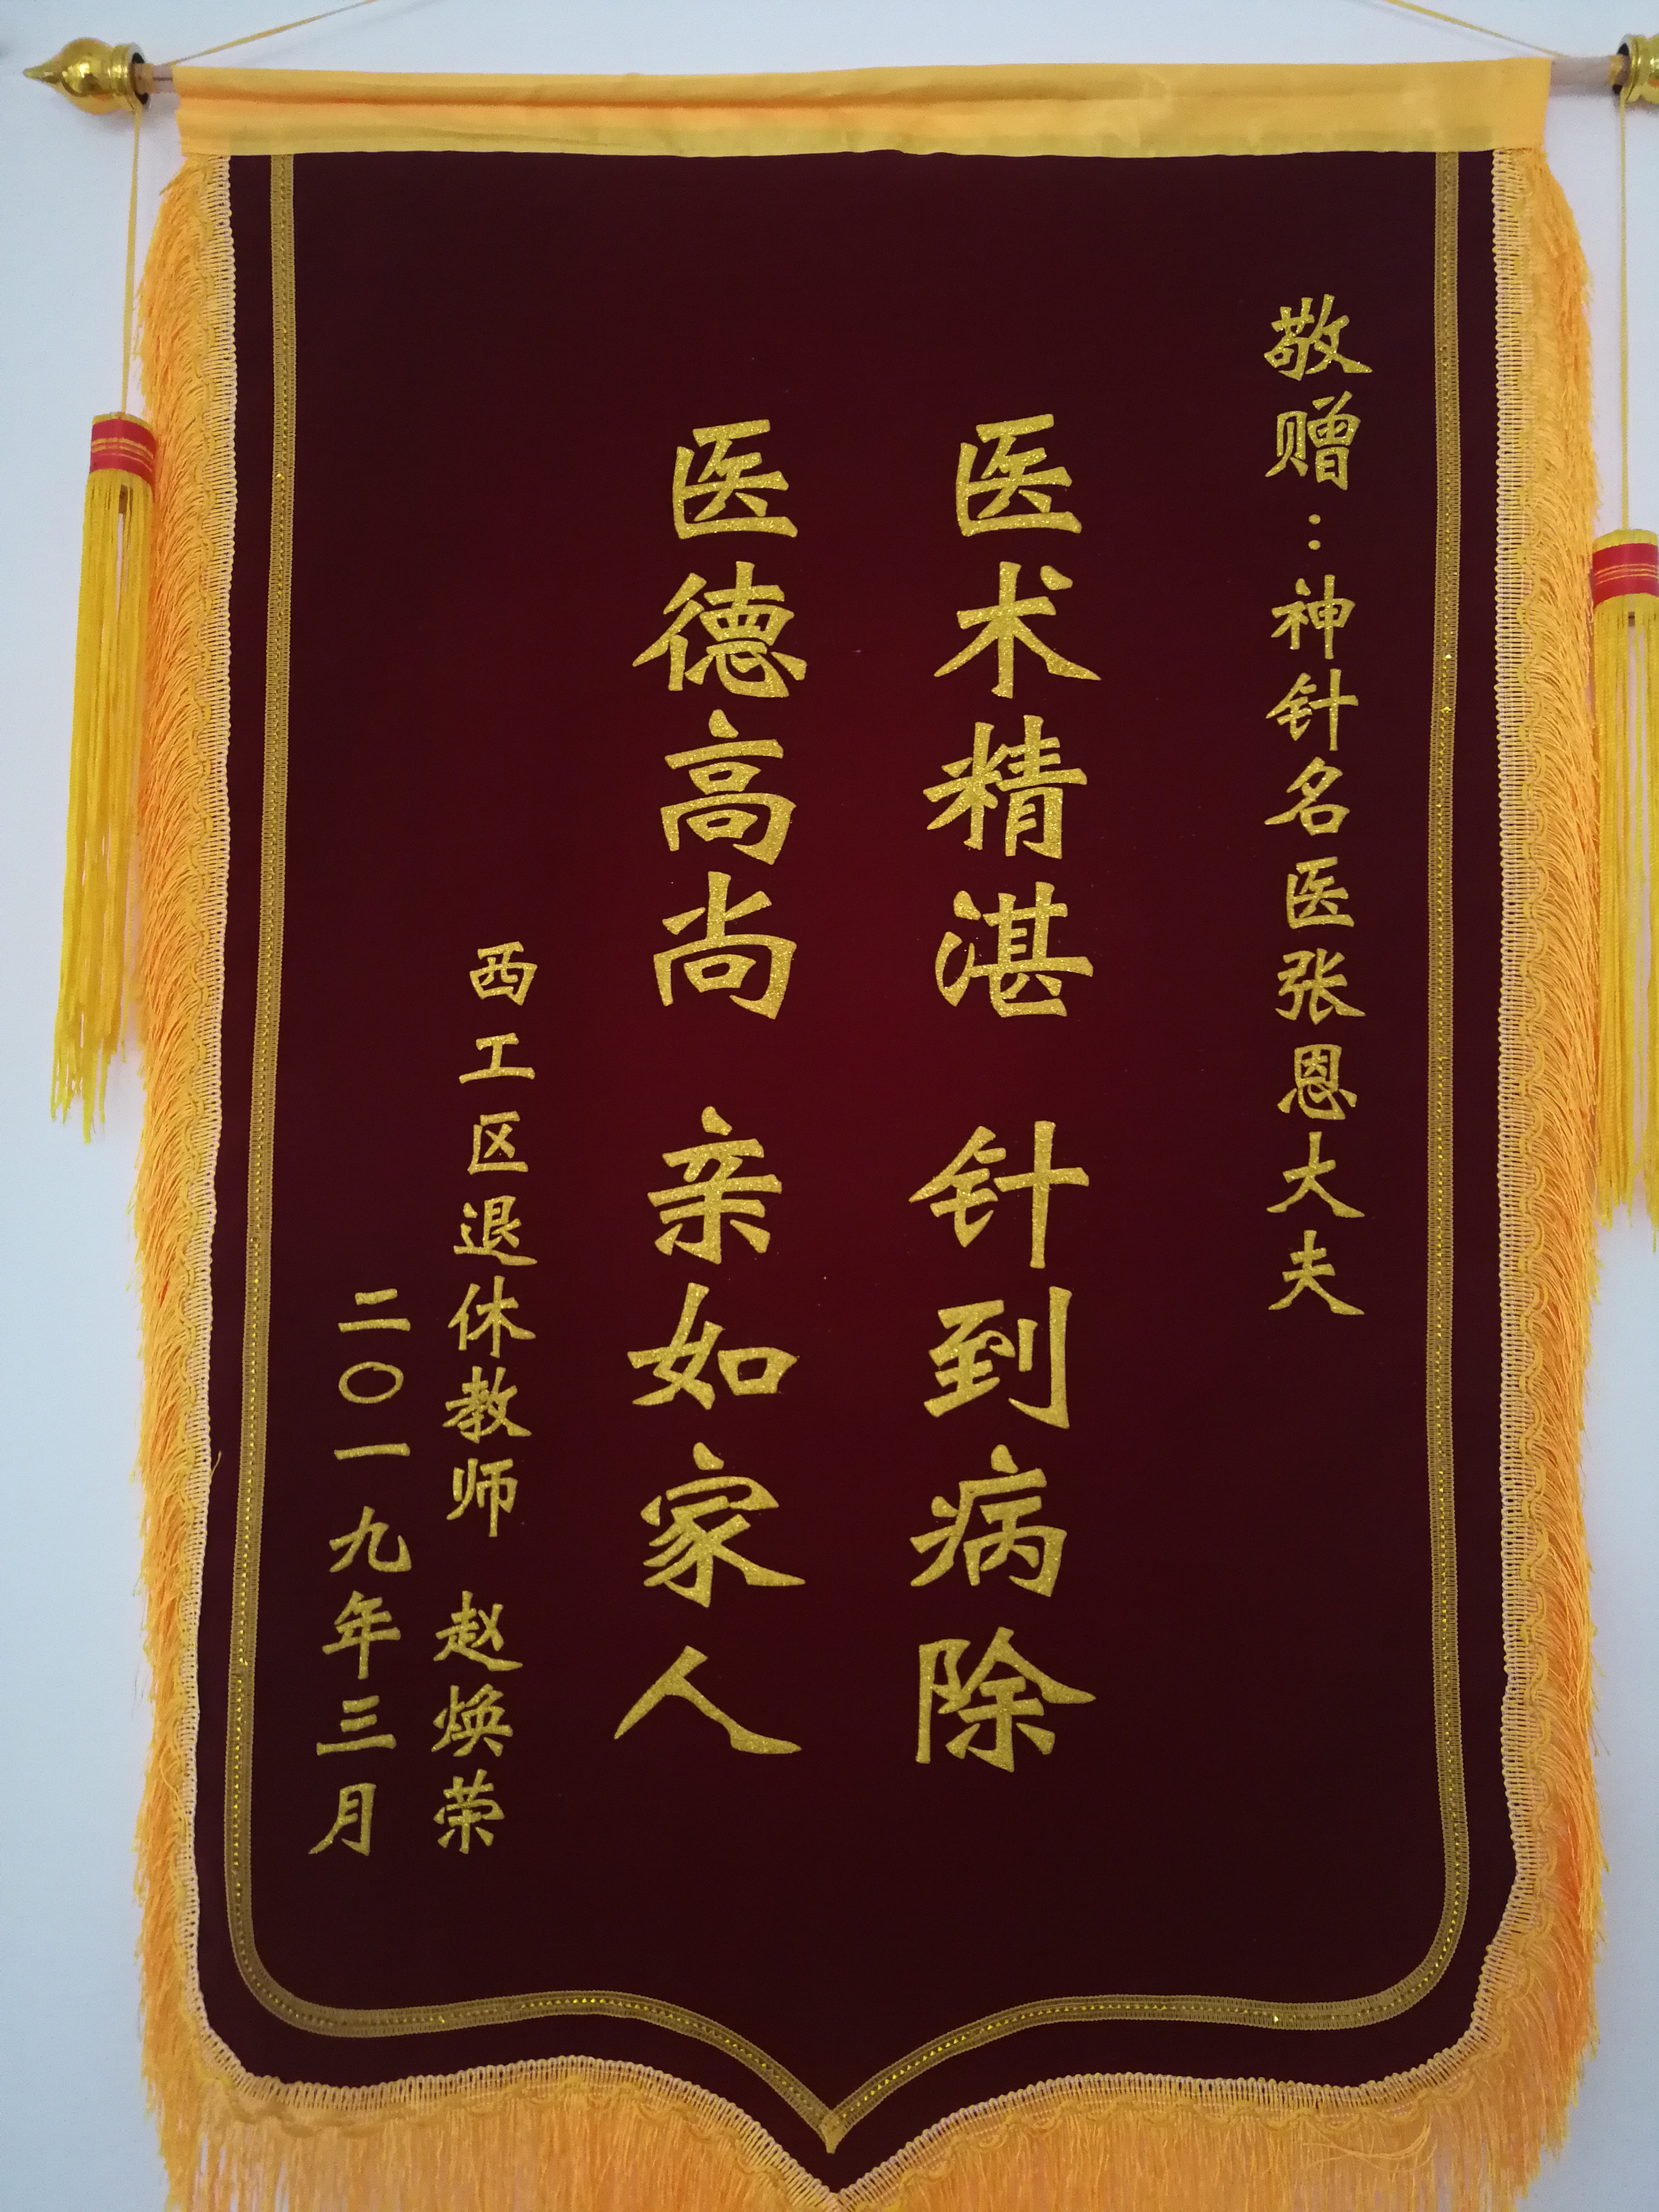 敬赠：神针名医张恩大夫
医术精湛 针到病除
医德高尚 亲如家人
西工区退休教师 赵焕荣
二〇一九年三月